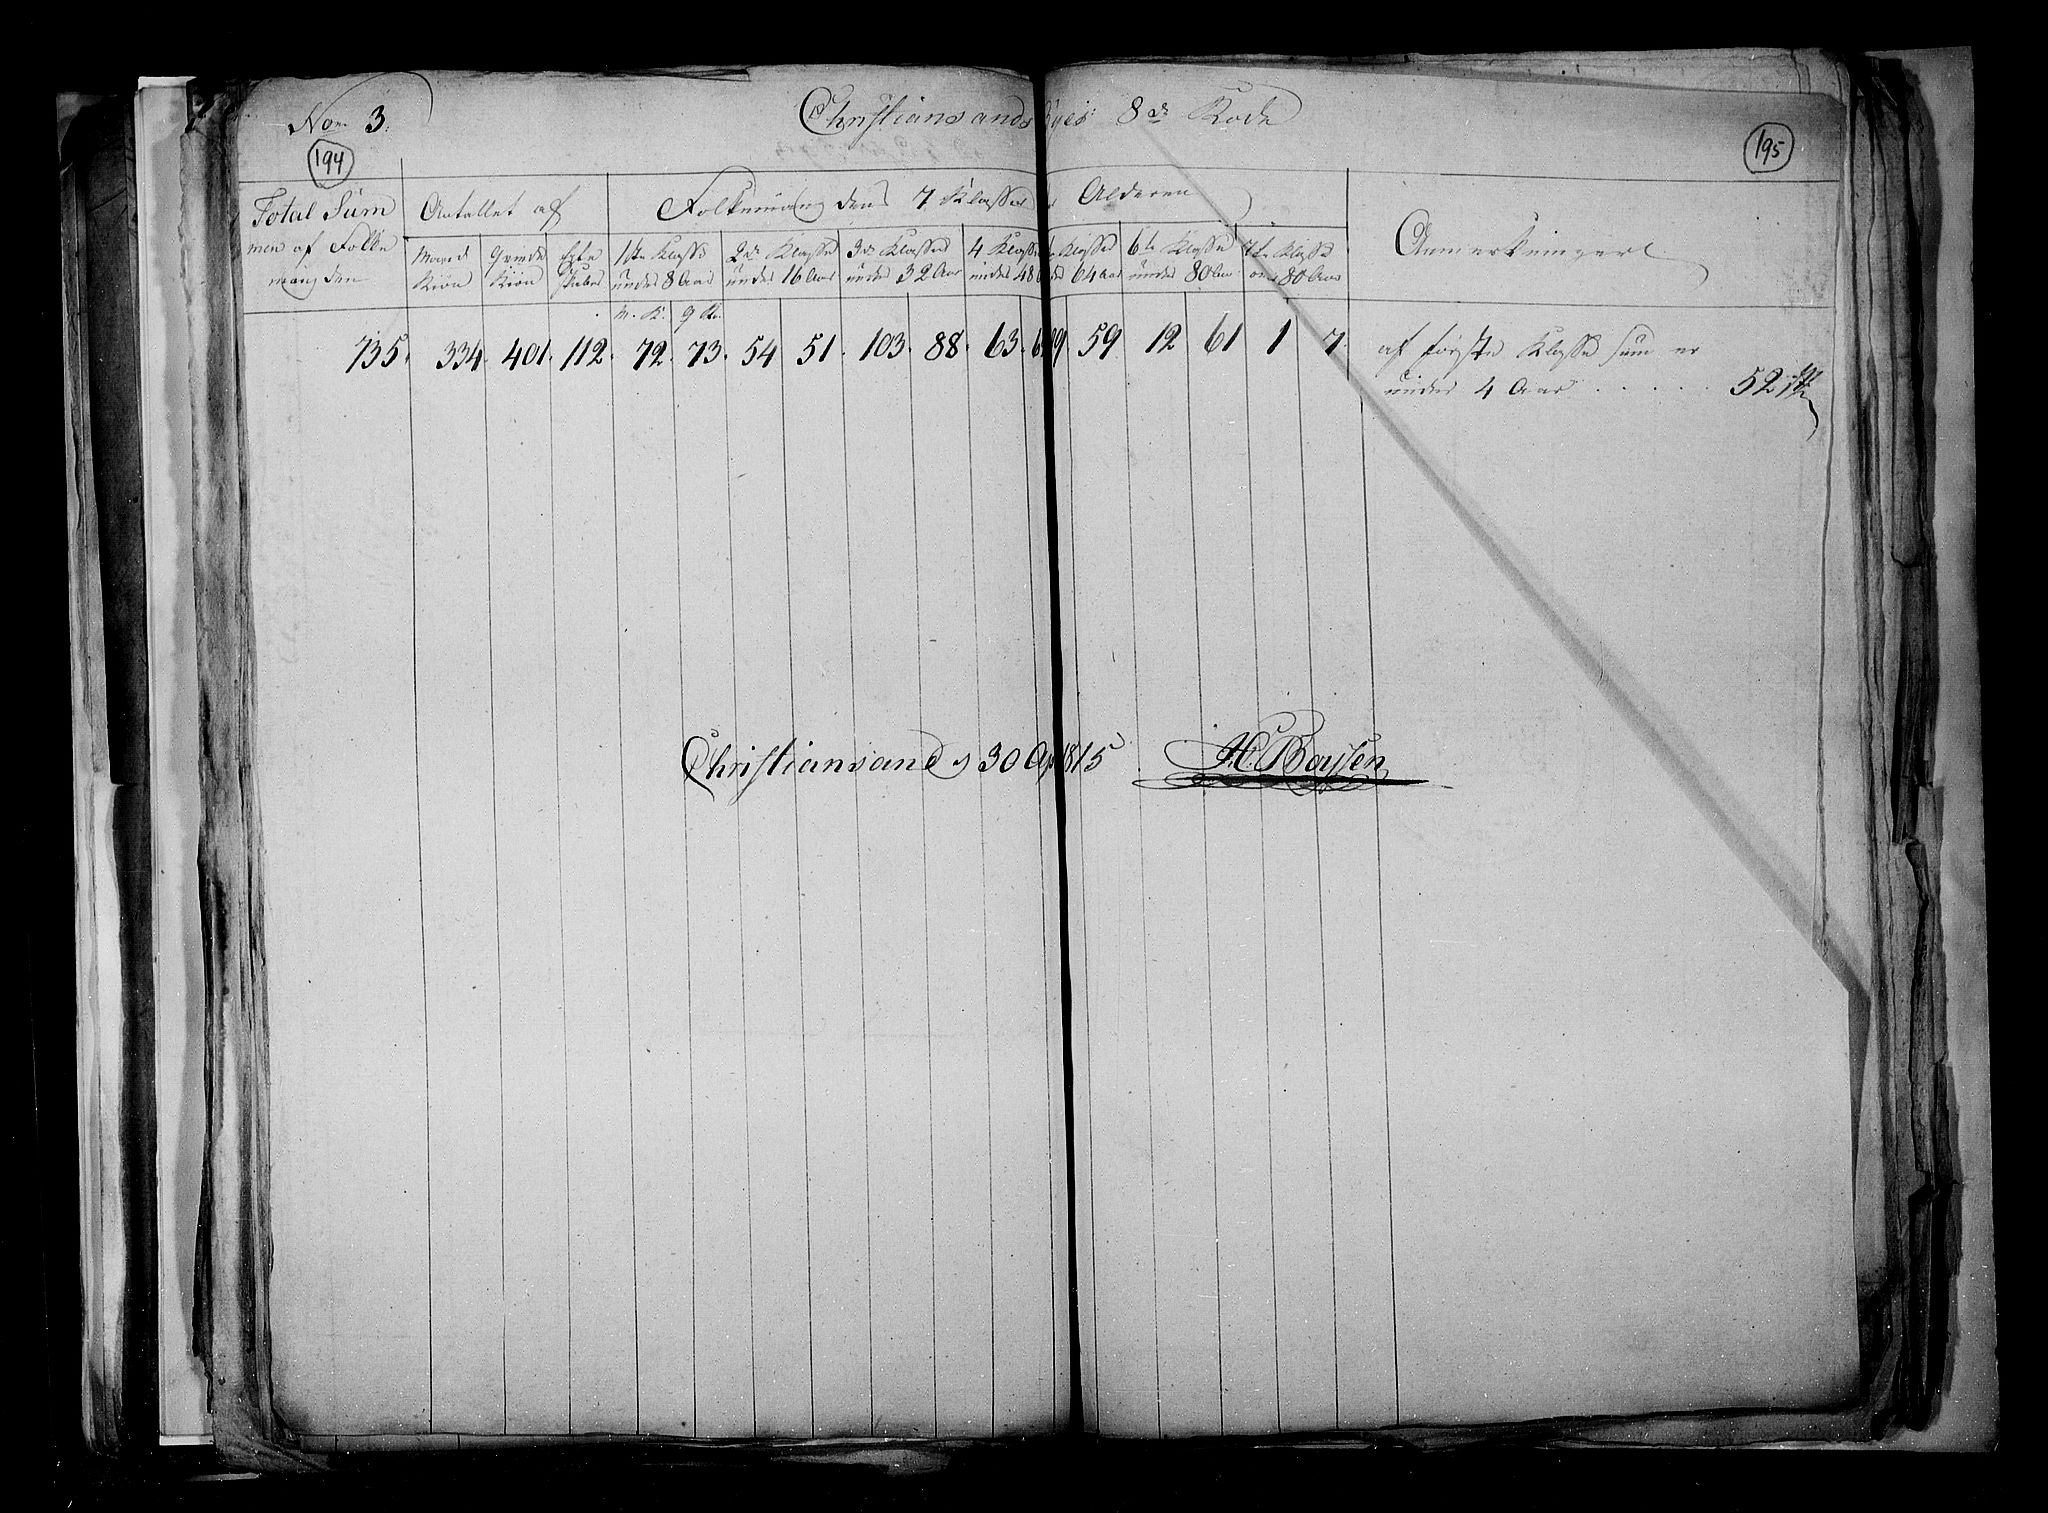 No 3. Christiansands Byes 8de Rode
194 195
Total Sum Antallet af Folkemængdens 7 Klasser Alderen Anmerkninger
men af Folke Mand Qvinde Egte 1ste Klasse 2de Klasse 3de Klasse 4 Klasse Klasse 6te Klasse 7te Klasse
mængden Kiøn Kiøn under 8 Aar under 16 Aar under 32 Aar under 48 64 Aar under 80 Aar over 80 Aar
M. K. Q. K.
735. 334. 401. 112. 72. 73. 54 51. 103. 88. 63. 59 12 61 1 7. af første Klasse sum er
under 4 Aar . . . . . . 52
Christiansand d 30 Ap 1815 H. Boysen